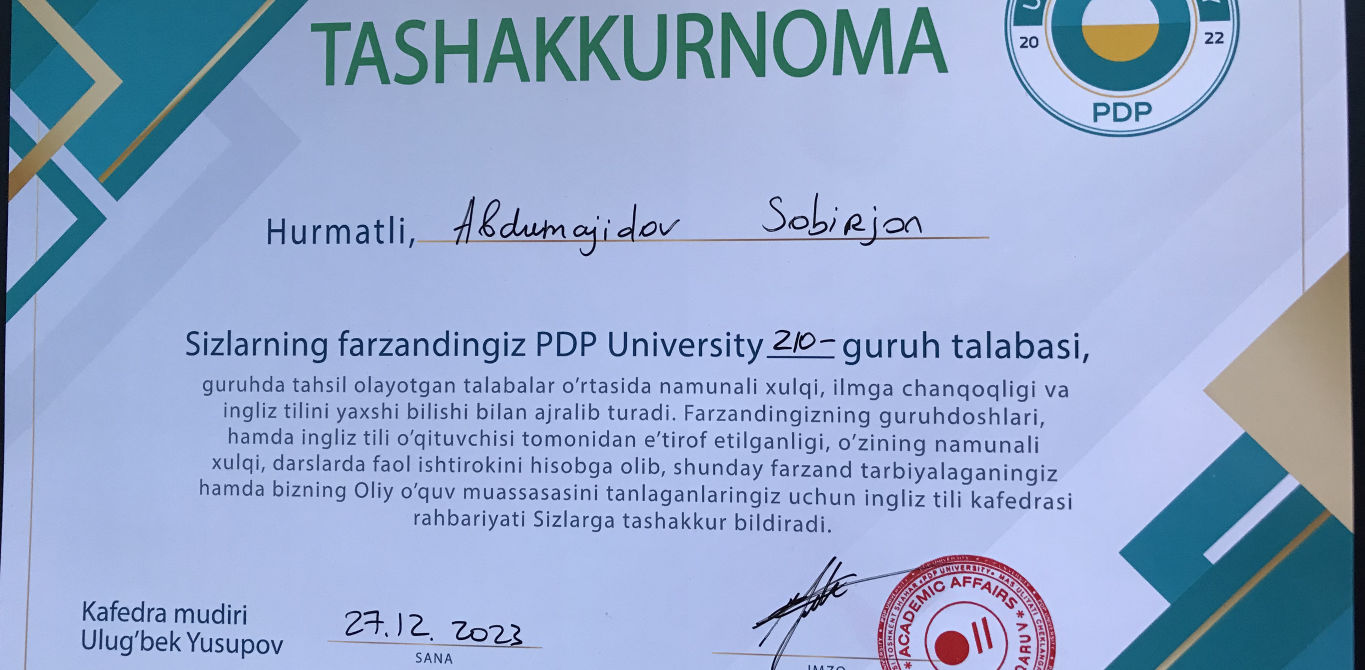 TASHAKKURNOMA
20 22
PDP
Hurmatli, Abdumajidov Sobirjon
Sizlarning farzandingiz PDP University 210- guruh talabasi,
guruhda tahsil olayotgan talabalar o'rtasida namunali xulqi, ilmga chanqoqligi va
ingliz tilini yaxshi bilishi bilan ajralib turadi. Farzandingizning guruhdoshlari,
hamda ingliz tili o'qituvchisi tomonidan e'tirof etilganligi, o'zining namunali
xulqi, darslarda faol ishtirokini hisobga olib, shunday farzand tarbiyalaganingiz
hamda bizning Oliy o'quv muassasasini tanlaganlaringiz uchun ingliz tili kafedrasi
rahbariyati Sizlarga tashakkur bildiradi.
Kafedra mudiri
Ulug'bek Yusupov
27.12.2023
SANA
IMZO
ACADEMIC AFFAIRS
PDP UNIVERSITY